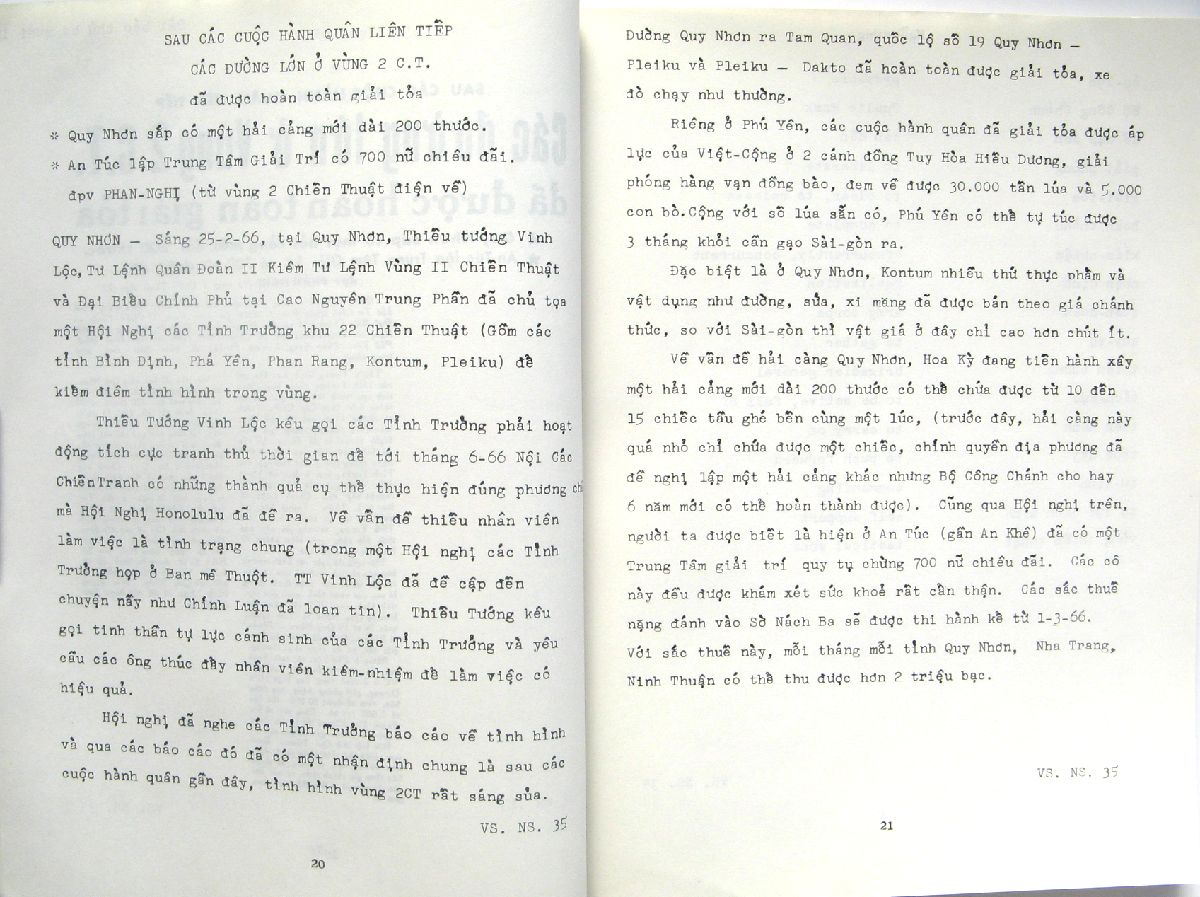 SAU CÁC CUỘC HÀNH QUÂN LIÊN TIẾP
CÁC ĐƯỜNG LỚN Ở VÙNG 2 C.T.
đã được hoàn toàn giải tỏa
* Quy Nhơn sắp có một hải cảng mới dài 200 thước.
* An Túc lập Trung Tâm Giải Trí có 700 nữ chiêu đãi.
đpv PHAN-NGHỊ (từ vùng 2 Chiến Thuật điện về)
QUY NHƠN – Sáng 25-2-66, tại Quy Nhơn, Thiếu tướng Vinh
Lộc, Tư Lệnh Quân Đoàn II Kiêm Tư Lệnh Vùng II Chiến Thuật
và Đại Biểu Chính Phủ tại Cao Nguyên Trung Phần đã chủ tọa
một Hội Nghị các Tỉnh Trưởng khu 22 Chiến Thuật (Gồm các
tỉnh Bình Định, Phá Yên, Phan Rang, Kontum, Pleiku) để
kiểm điểm tình hình trong vùng.
Thiếu Tướng Vinh Lộc kêu gọi các Tỉnh Trưởng phải hoạt
động tích cực tranh thủ thời gian để tới tháng 6-66 Nội Các
ChiếnTranh có những thành quả cụ thể thực hiện đúng phương ch
mà Hội Nghị Honolulu đã đề ra. Về vấn đề thiếu nhân viên
làm việc là tình trạng chung (trong một Hội nghị các Tỉnh
Trưởng họp ở Ban mê Thuột. TT Vinh Lộc đã đề cập đến
chuyện nầy như Chính Luận đã loan tin). Thiếu Tướng kêu
gọi tinh thần tự lực cánh sinh của các Tỉnh Trưởng và yêu
cầu các ông thúc đẩy nhân viên kiêm-nhiệm để làm việc có
hiệu quả.
Hội nghị đã nghe các Tỉnh Trưởng báo cáo về tình hình
và qua các báo cáo đó đã có một nhận định chung là sau các
cuộc hành quân gần đây, tình hình vùng 2CT rất sáng sủa.
VS. NS. 35
20
Đường Quy Nhơn ra Tam Quan, quốc lộ số 19 Quy Nhơn –
Pleiku và Pleiku – Dakto đã hoàn toàn được giải tỏa, xe
đò chạy như thường.
Riêng ở Phú Yên, các cuộc hành quân đã giải tỏa được áp
lực của Việt-Cộng ở 2 cánh đồng Tuy Hòa Hiếu Dương, giải
phóng hàng vạn đồng bào, đem về được 30.000 tấn lúa và 5.000
con bò.Cộng với số lúa sẵn có, Phú Yên có thể tự túc được
3 tháng khỏi cần gạo Sài-gòn ra.
Đặc biệt là ở Quy Nhơn, Kontum nhiều thứ thực phẩm và
vật dụng như đường, sửa, xi măng đã được bán theo giá chánh
thức, so với Sài-gòn thì vật giá ở đây chỉ cao hơn chút ít.
Về vấn đề hải cảng Quy Nhơn, Hoa Kỳ đang tiến hành xây
một hải cảng mới dài 200 thước có thể chứa được từ 10 đến
15 chiếc tầu ghé bến cùng một lúc, (trước đây, hải cảng này
quá nhỏ chỉ chứa được một chiếc, chính quyền địa phương đã
đề nghị lập một hải cảng khác nhưng Bộ Công Chánh cho hay
6 năm mới có thể hoàn thành được). Cũng qua Hội nghị trên,
người ta được biết là hiện ở An Túc (gần An Khê) đã có một
Trung Tâm giải trí quy tụ chừng 700 nữ chiêu đãi. Các cô
này đều được khám xét sức khoẻ rất cẩn thận. Các sắc thuế
nặng đánh vào Sở Nách Ba sẽ được thi hành kể từ 1-3-66.
Với sắc thuế này, mỗi tháng mỗi tỉnh Quy Nhơn, Nha Trang,
Ninh Thuận có thể thu được hơn 2 triệu bạc.
VS. NS. 35
21